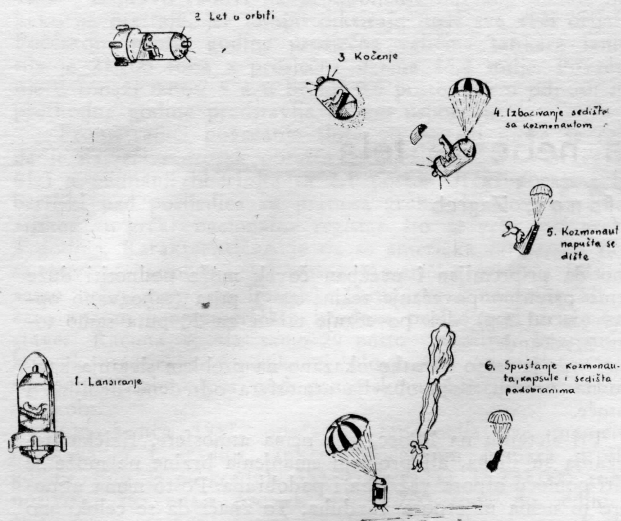 2 Let u orbiti
3 Kočenje
4. Izbacivanje sedišta
sa kozmonautom
5. Kozmonaut
napušta se
dište
1. Lansiranje
6. Spuštanje kozmonau-
ta, kapsule i sedišta
padobranima